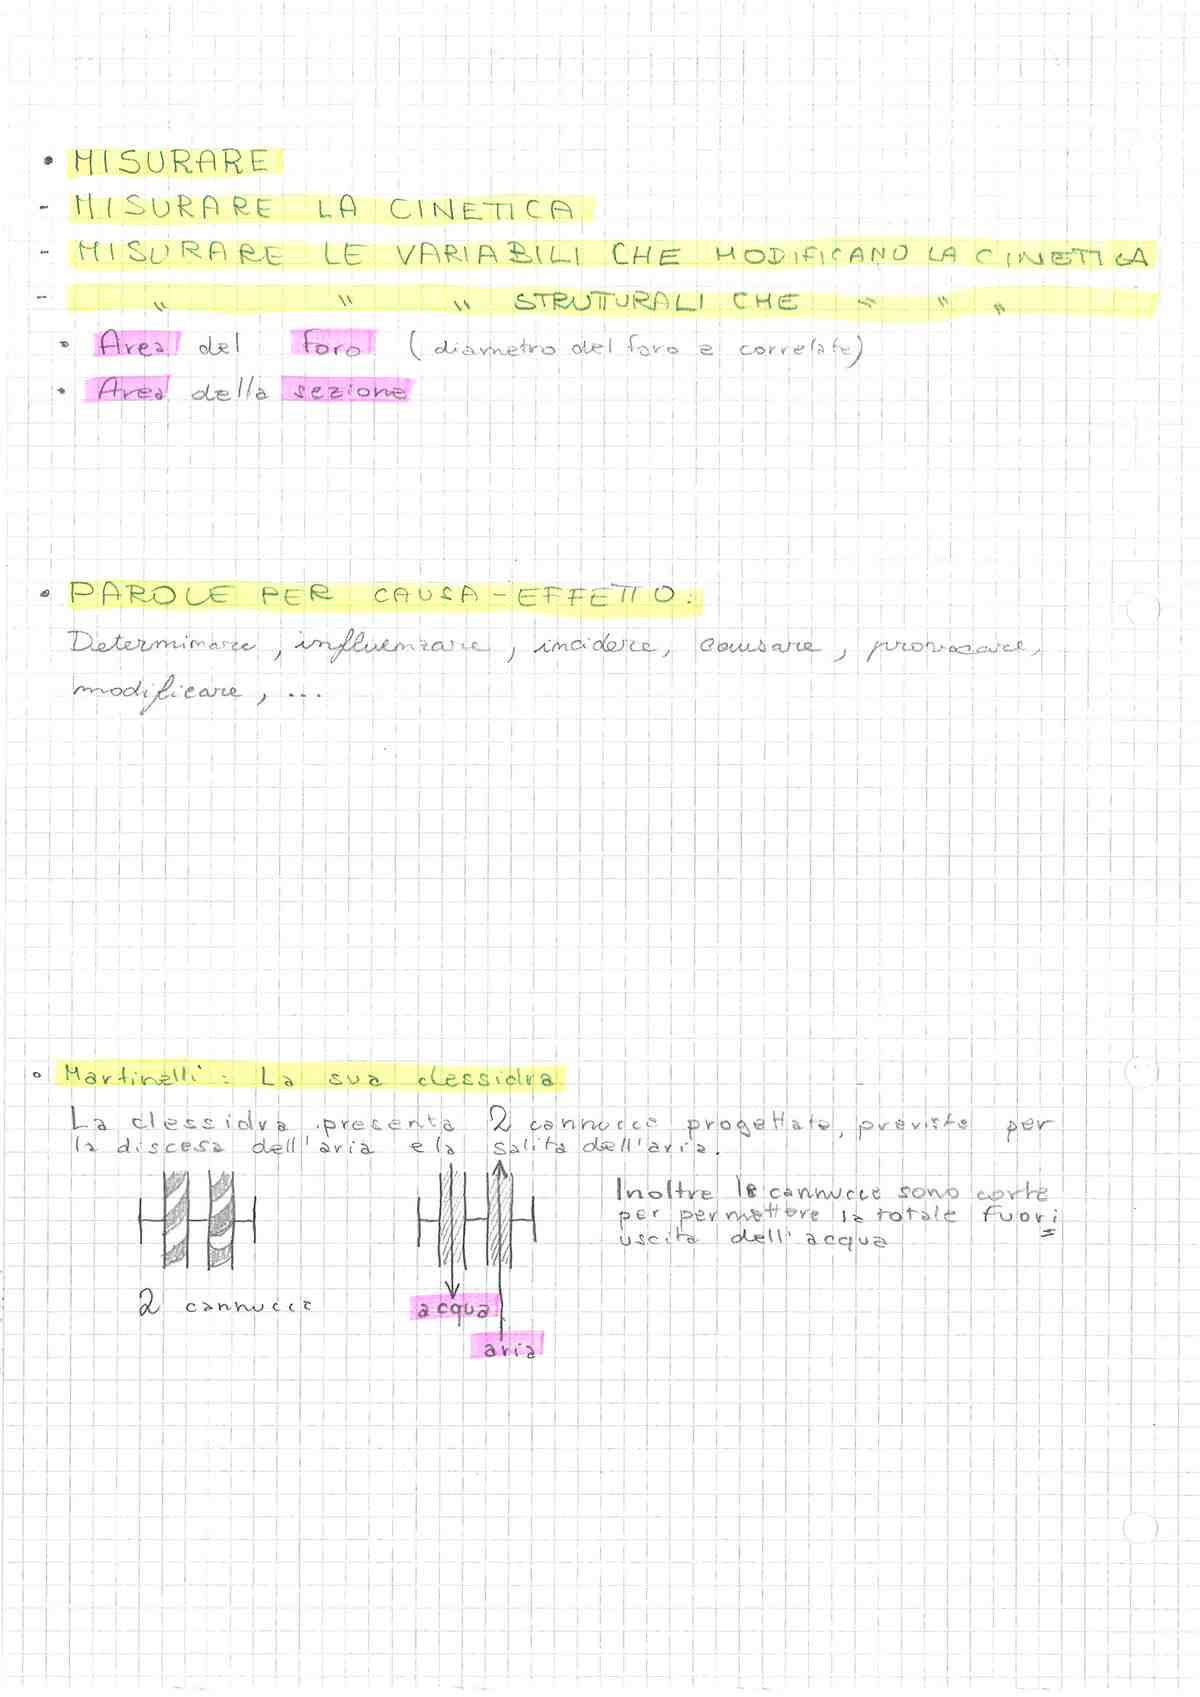 • MISURARE
- MISURARE LA CINETICA
- MISURARE LE VARIABILI CHE MODIFICANO LA CINETICA
- " " " STRUTTURALI CHE " " "
• Area del Foro (diametro del foro e correlate)
• Area della sezione
• PAROLE PER CAUSA-EFFETTO:
Determinare, influenzare, incidere, causare, provocare,
modificare, ...
• Martinelli: La sua clessidra
La clessidra presenta 2 cannucce progettate, previste per
la discesa dell'aria e la salita dell'aria.
Inoltre le cannucce sono corte
per permettere la totale fuori
uscita dell'acqua
2 cannucce
acqua
aria